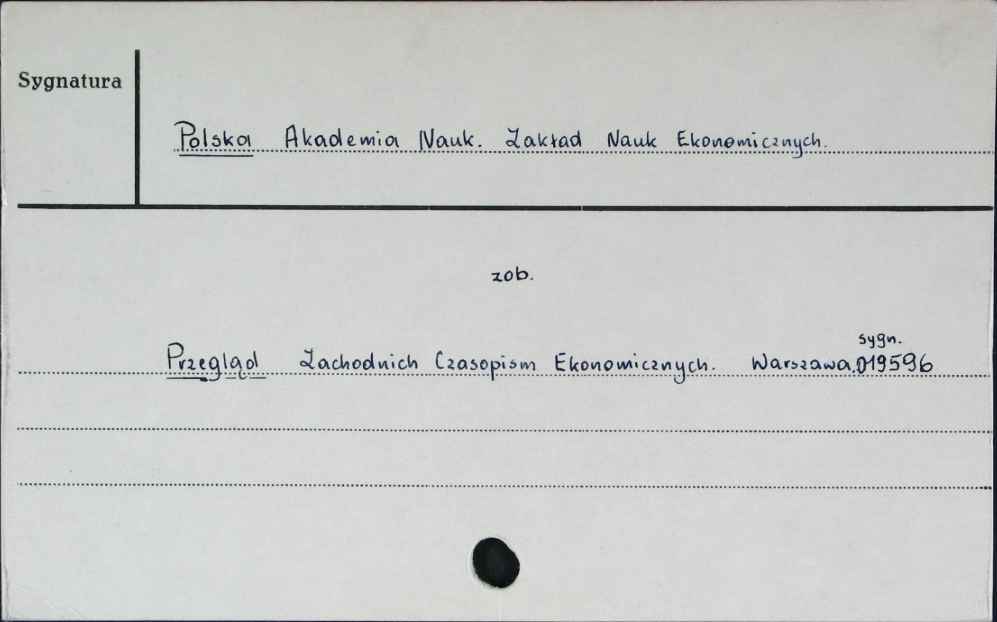 Sygnatura
Polska Akademia Nauk. Zakład Nauk Ekonomicznych.
zob.
sygn.
Przegląd Zachodnich Czasopism Ekonomicznych. Warszawa, 019596